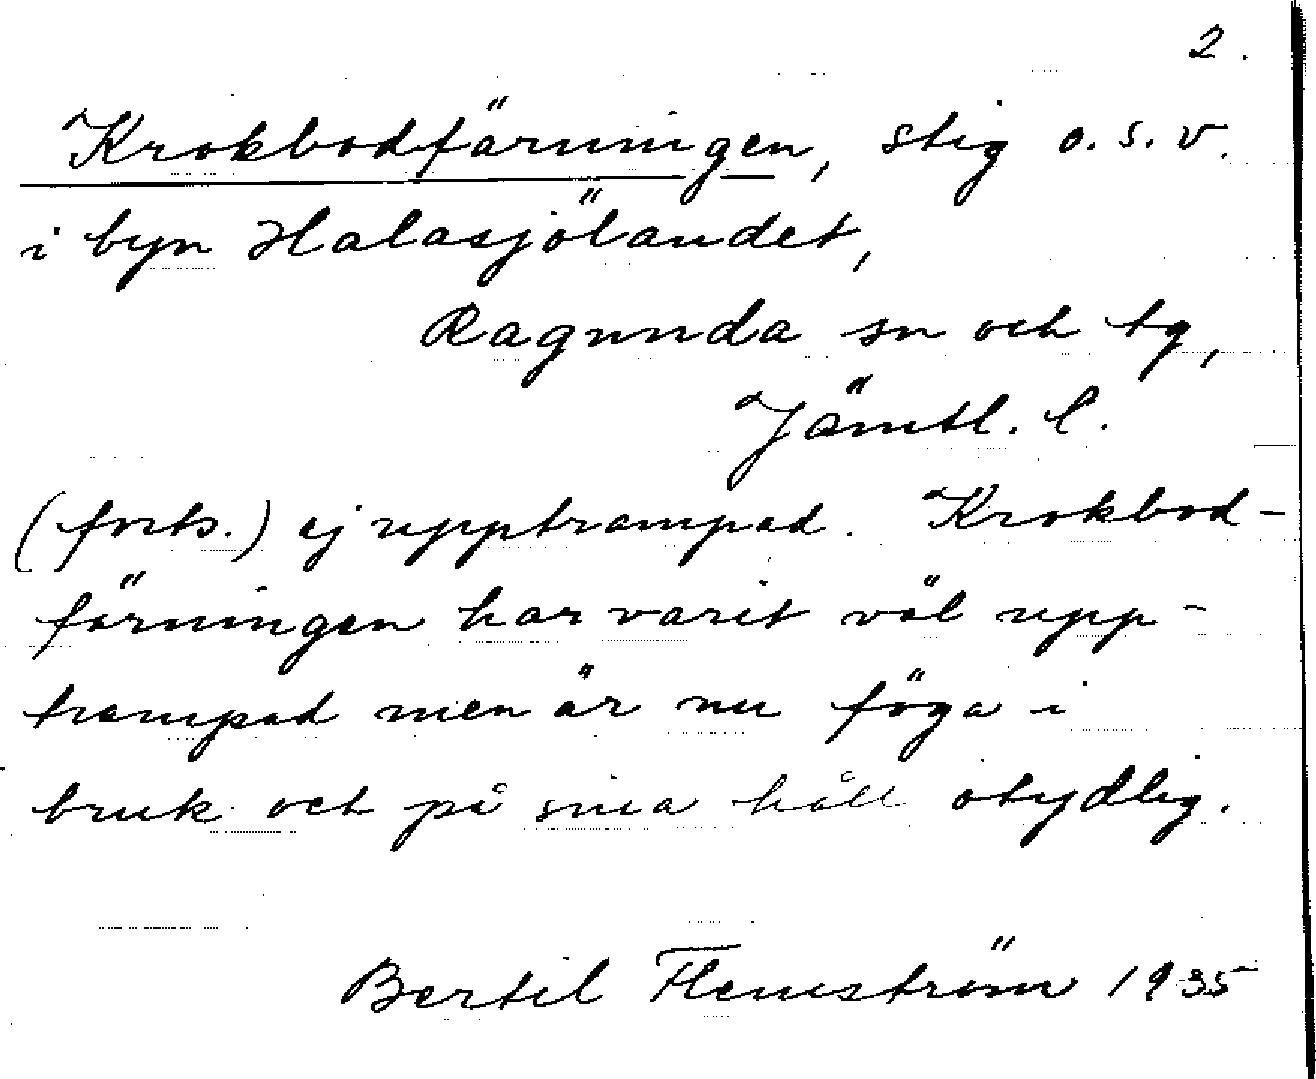 2.
Krokbodfärningen, stig o.s.v.
i byn Halasjölandet,
Ragunda sn och tg,
Jämtl. l.
(forts.) ej upptrampad. Krokbod-
färningen har varit väl upp-
trampad men är nu föga i
bruk och på sina håll otydlig.
Bertil Flemström 1935